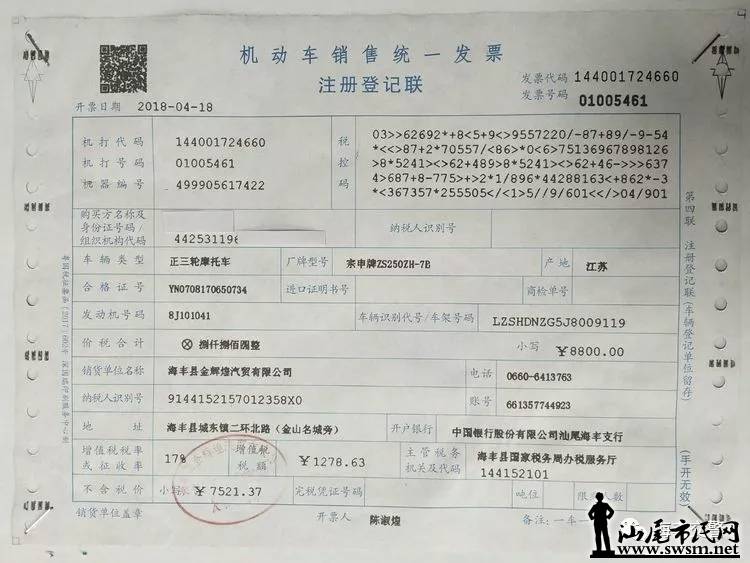 机动车销售统一发票
注册登记联
发票代码 144001724660
发票号码 01005461
开票日期 2018-04-18
机打代码 144001724660
机打号码 01005461
机器编号 499905617422
税控码
03>>62692*+8<5+9<>9557220/-87+89/-9-54
*<<>87+2*70557/<86>*0<6>75136967898126
>8*5241><>62+489>8*5241><>62+46->>>637
4>687+8-775>+>2*1/896*44288163+<862*-3
*<367357*255505/<1>5//9/601<</>04/901
购买方名称及
身份证号码/
组织机构代码 44253119
纳税人识别号
车辆类型 正三轮摩托车 厂牌型号 宗申牌ZS250ZH-7B 产地 江苏
合格证号 YN0708170650734 进口证明书号 商检单号
发动机号码 8J101041 车辆识别代号/车架号码 LZSHDNZG5J8009119
价税合计 ⊗ 捌仟捌佰圆整 小写 ¥8800.00
销货单位名称 海丰县金辉煌汽贸有限公司 电话 0660-6413763
纳税人识别号 9144152157012358X0 账号 661357744923
地址 海丰县城东镇二环北路（金山名城旁） 开户银行 中国银行股份有限公司汕尾海丰支行
增值税税率
或征收率 17% 增值税
税额 ¥1278.63 主管税务
机关及代码 海丰县国家税务局办税服务厅
144152101
不含税价 小写 ¥7521.37 完税凭证号码 吨位 限乘人数
销货单位盖章 开票人 陈淑煌 备注：一车一
第四联 注册登记联(车辆登记单位留存)
(手开无效)
汕尾市民网
www.swsm.net